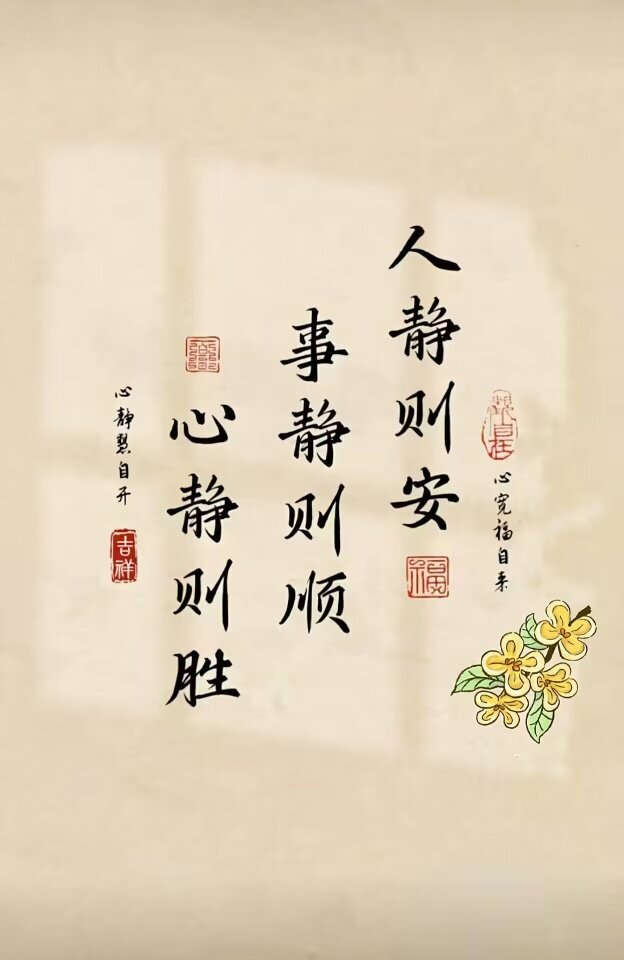 心宽福自来
人静则安
福
事静则顺
心静则胜
心静慧自开
吉祥